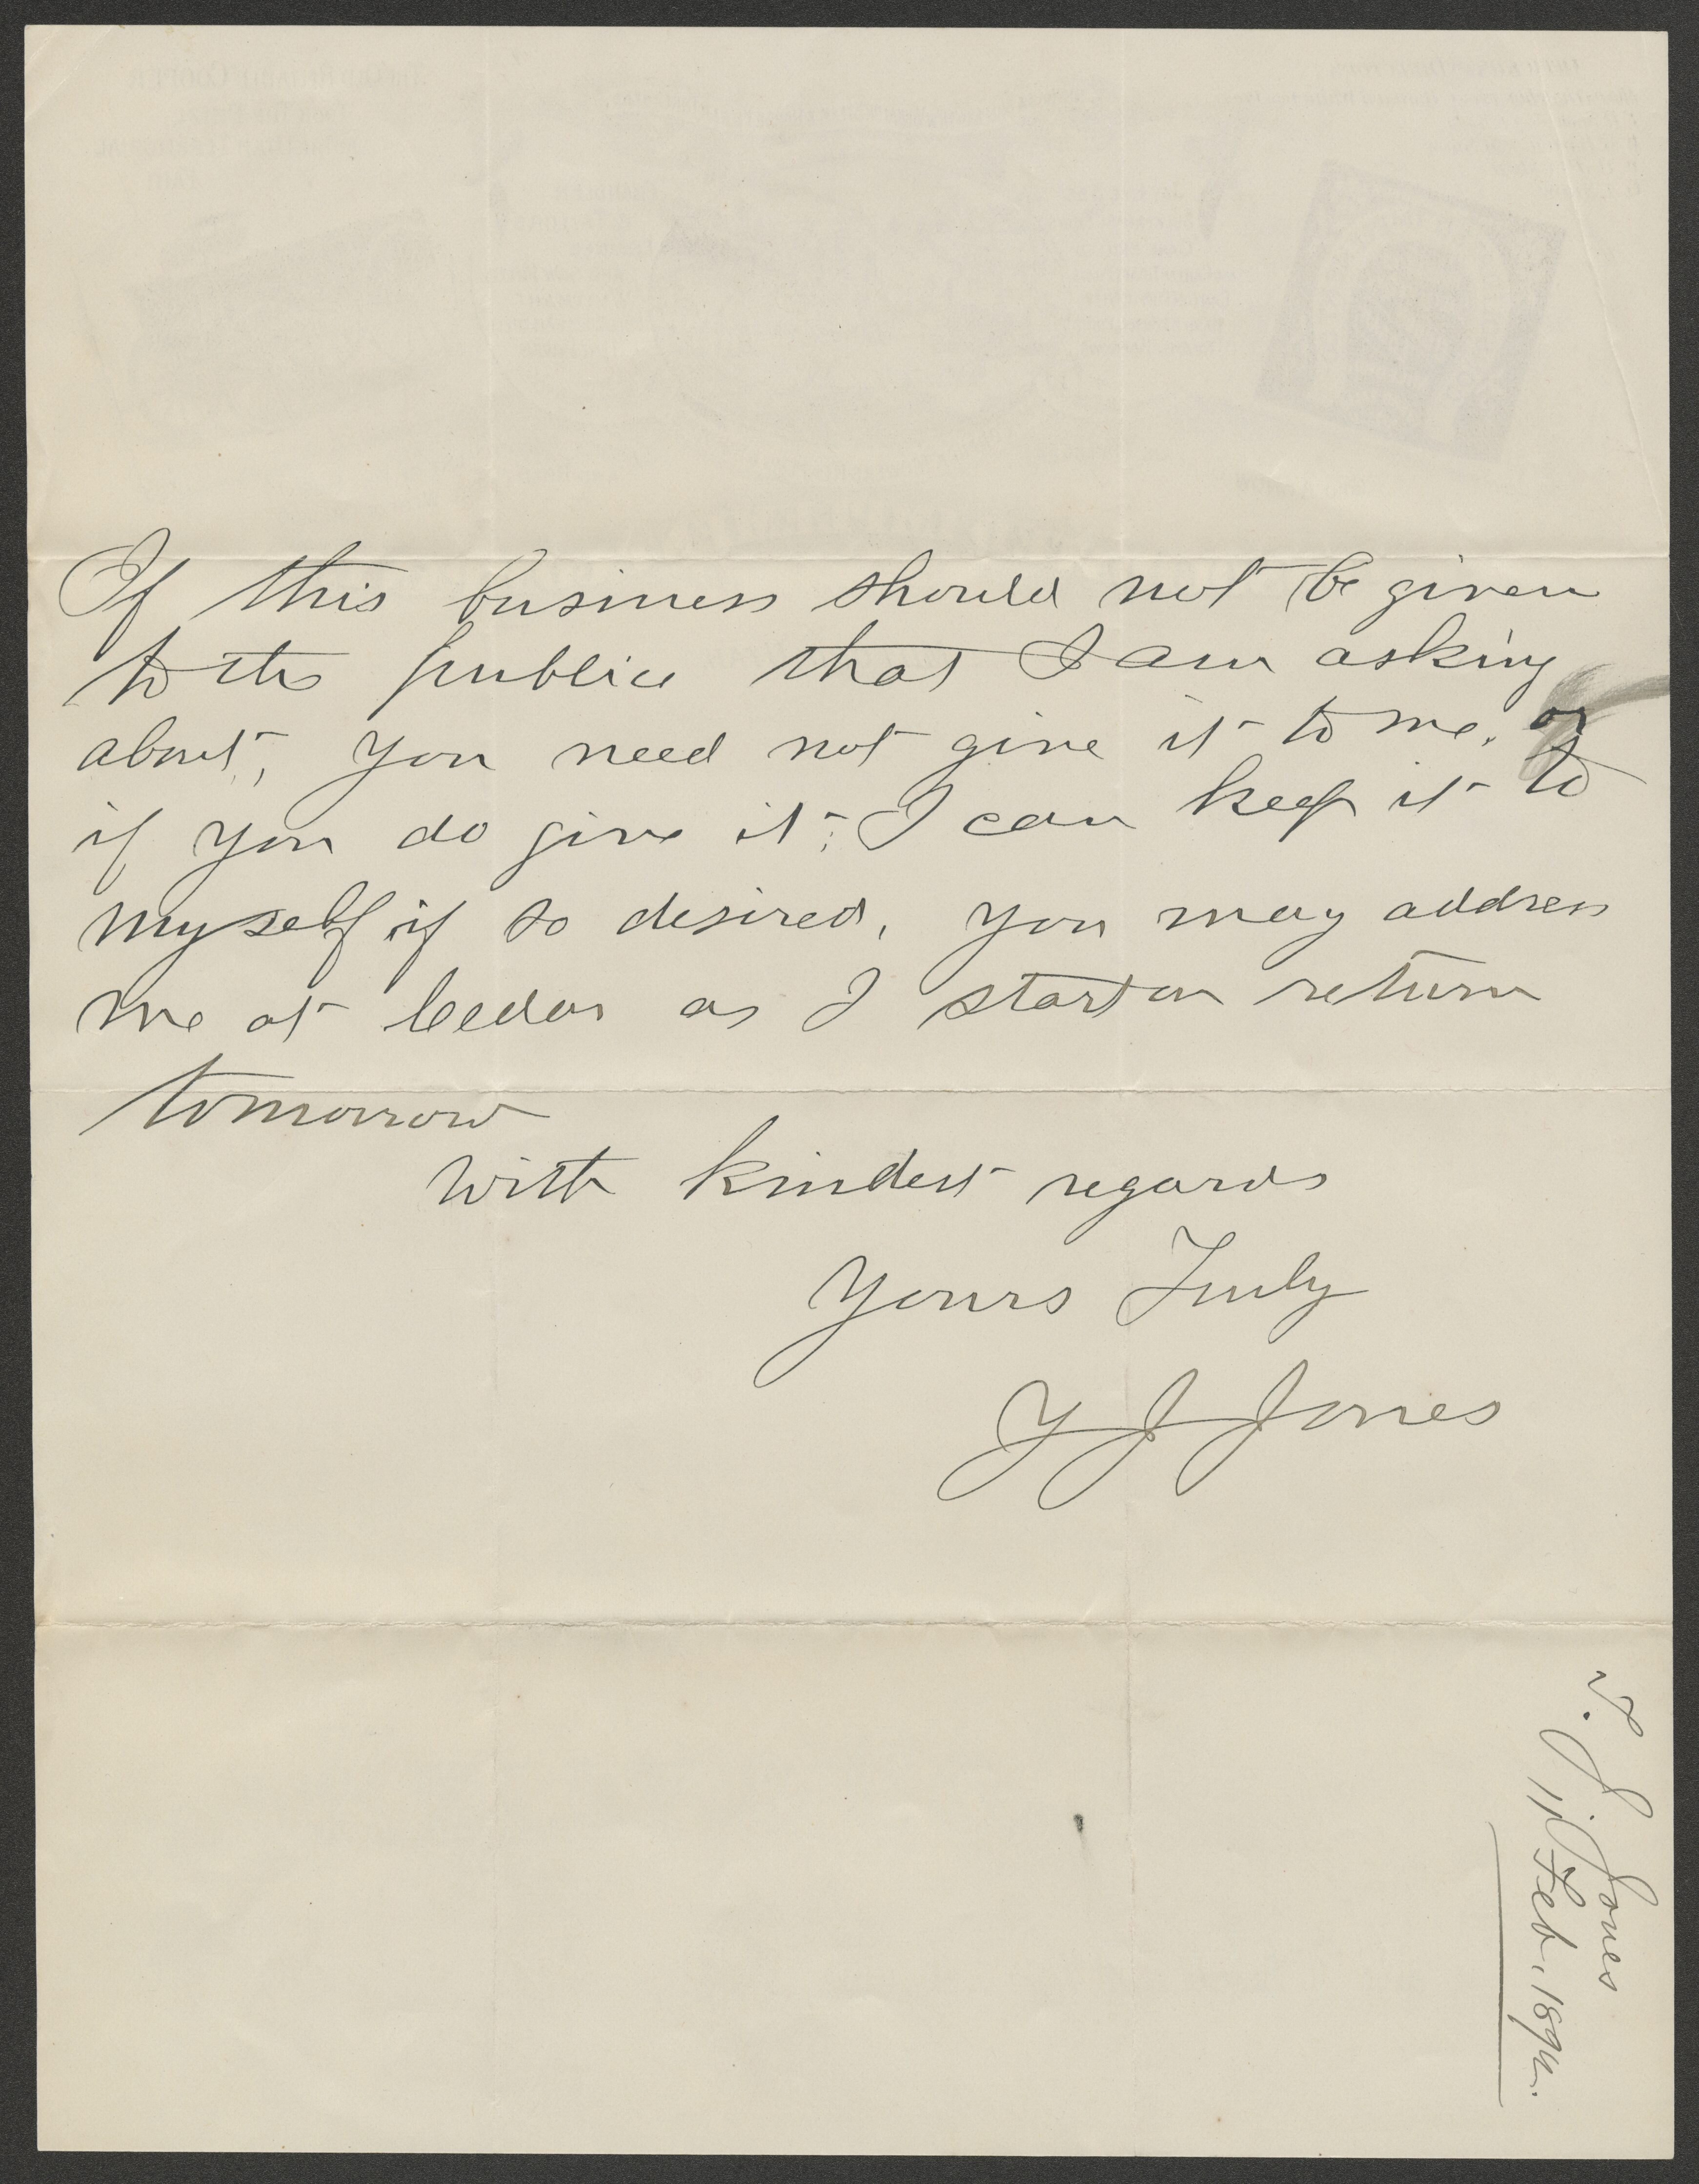 If this business should not be given
to the public that I am asking
about, you need not give it to me. or
if you do give it; I can keep it to
myself if so desired, you may address
me at Cedar as I start on return
tomorrow
with kindest regards
Yours Truly
J J Jones
J. J. Jones
11 Feb. 1894.